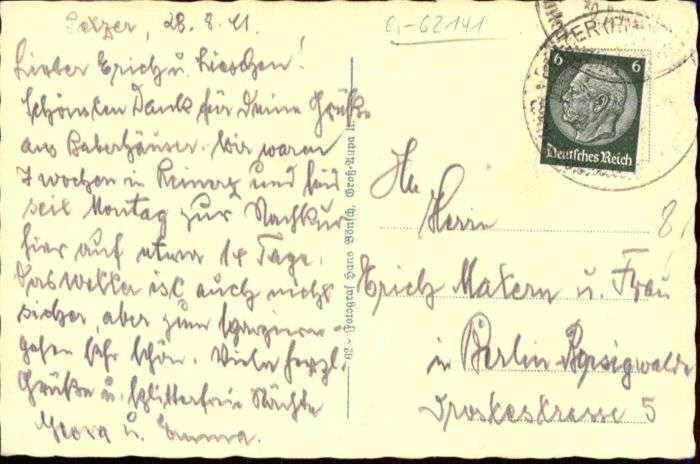 Petzer, 28.8.41.
Lieber Erich u. Lieschen!
Schönsten Dank für Deine Grüße
aus Baberhäuser. Wir waren
7 Wochen in Reinerz und sind
seit Montag zur Nachkur
hier auf etwa 14 Tage.
Das Wetter ist auch nicht
sicher, aber zum spazieren-
gehen sehr schön. Viele herzl.
Grüße u. splitterfreie Nächte
Georg u. Emma.
62 - Fotograf Hans Bönsch, Groß-Aupa
G-62141
6 6
Deutsches Reich
An
Herrn
Erich Matern u. Frau
in Berlin-Borsigwalde
5